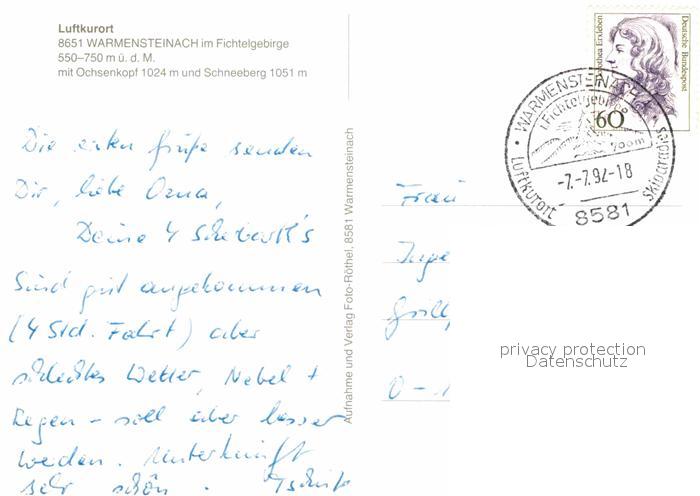 Luftkurort
8651 WARMENSTEINACH im Fichtelgebirge
550–750 m ü. d. M.
mit Ochsenkopf 1024 m und Schneeberg 1051 m
Die ersten Grüße senden
Dir, liebe Oma,
Deine 4
Sind gut angekommen
(4 Std. Fahrt) aber
schlechtes Wetter, Nebel +
Regen – soll aber besser
werden. Unterkunft
sehr schön. Tschüß
Aufnahme und Verlag Foto-Röthel, 8581 Warmensteinach
Deutsche Bundespost
60
WARMENSTEINACH
i. Fichtelgebirge
700m
-7.-7.92-18
Luftkurort
Skiparadies
8581
Frau
Inge
0 -
privacy protection
Datenschutz